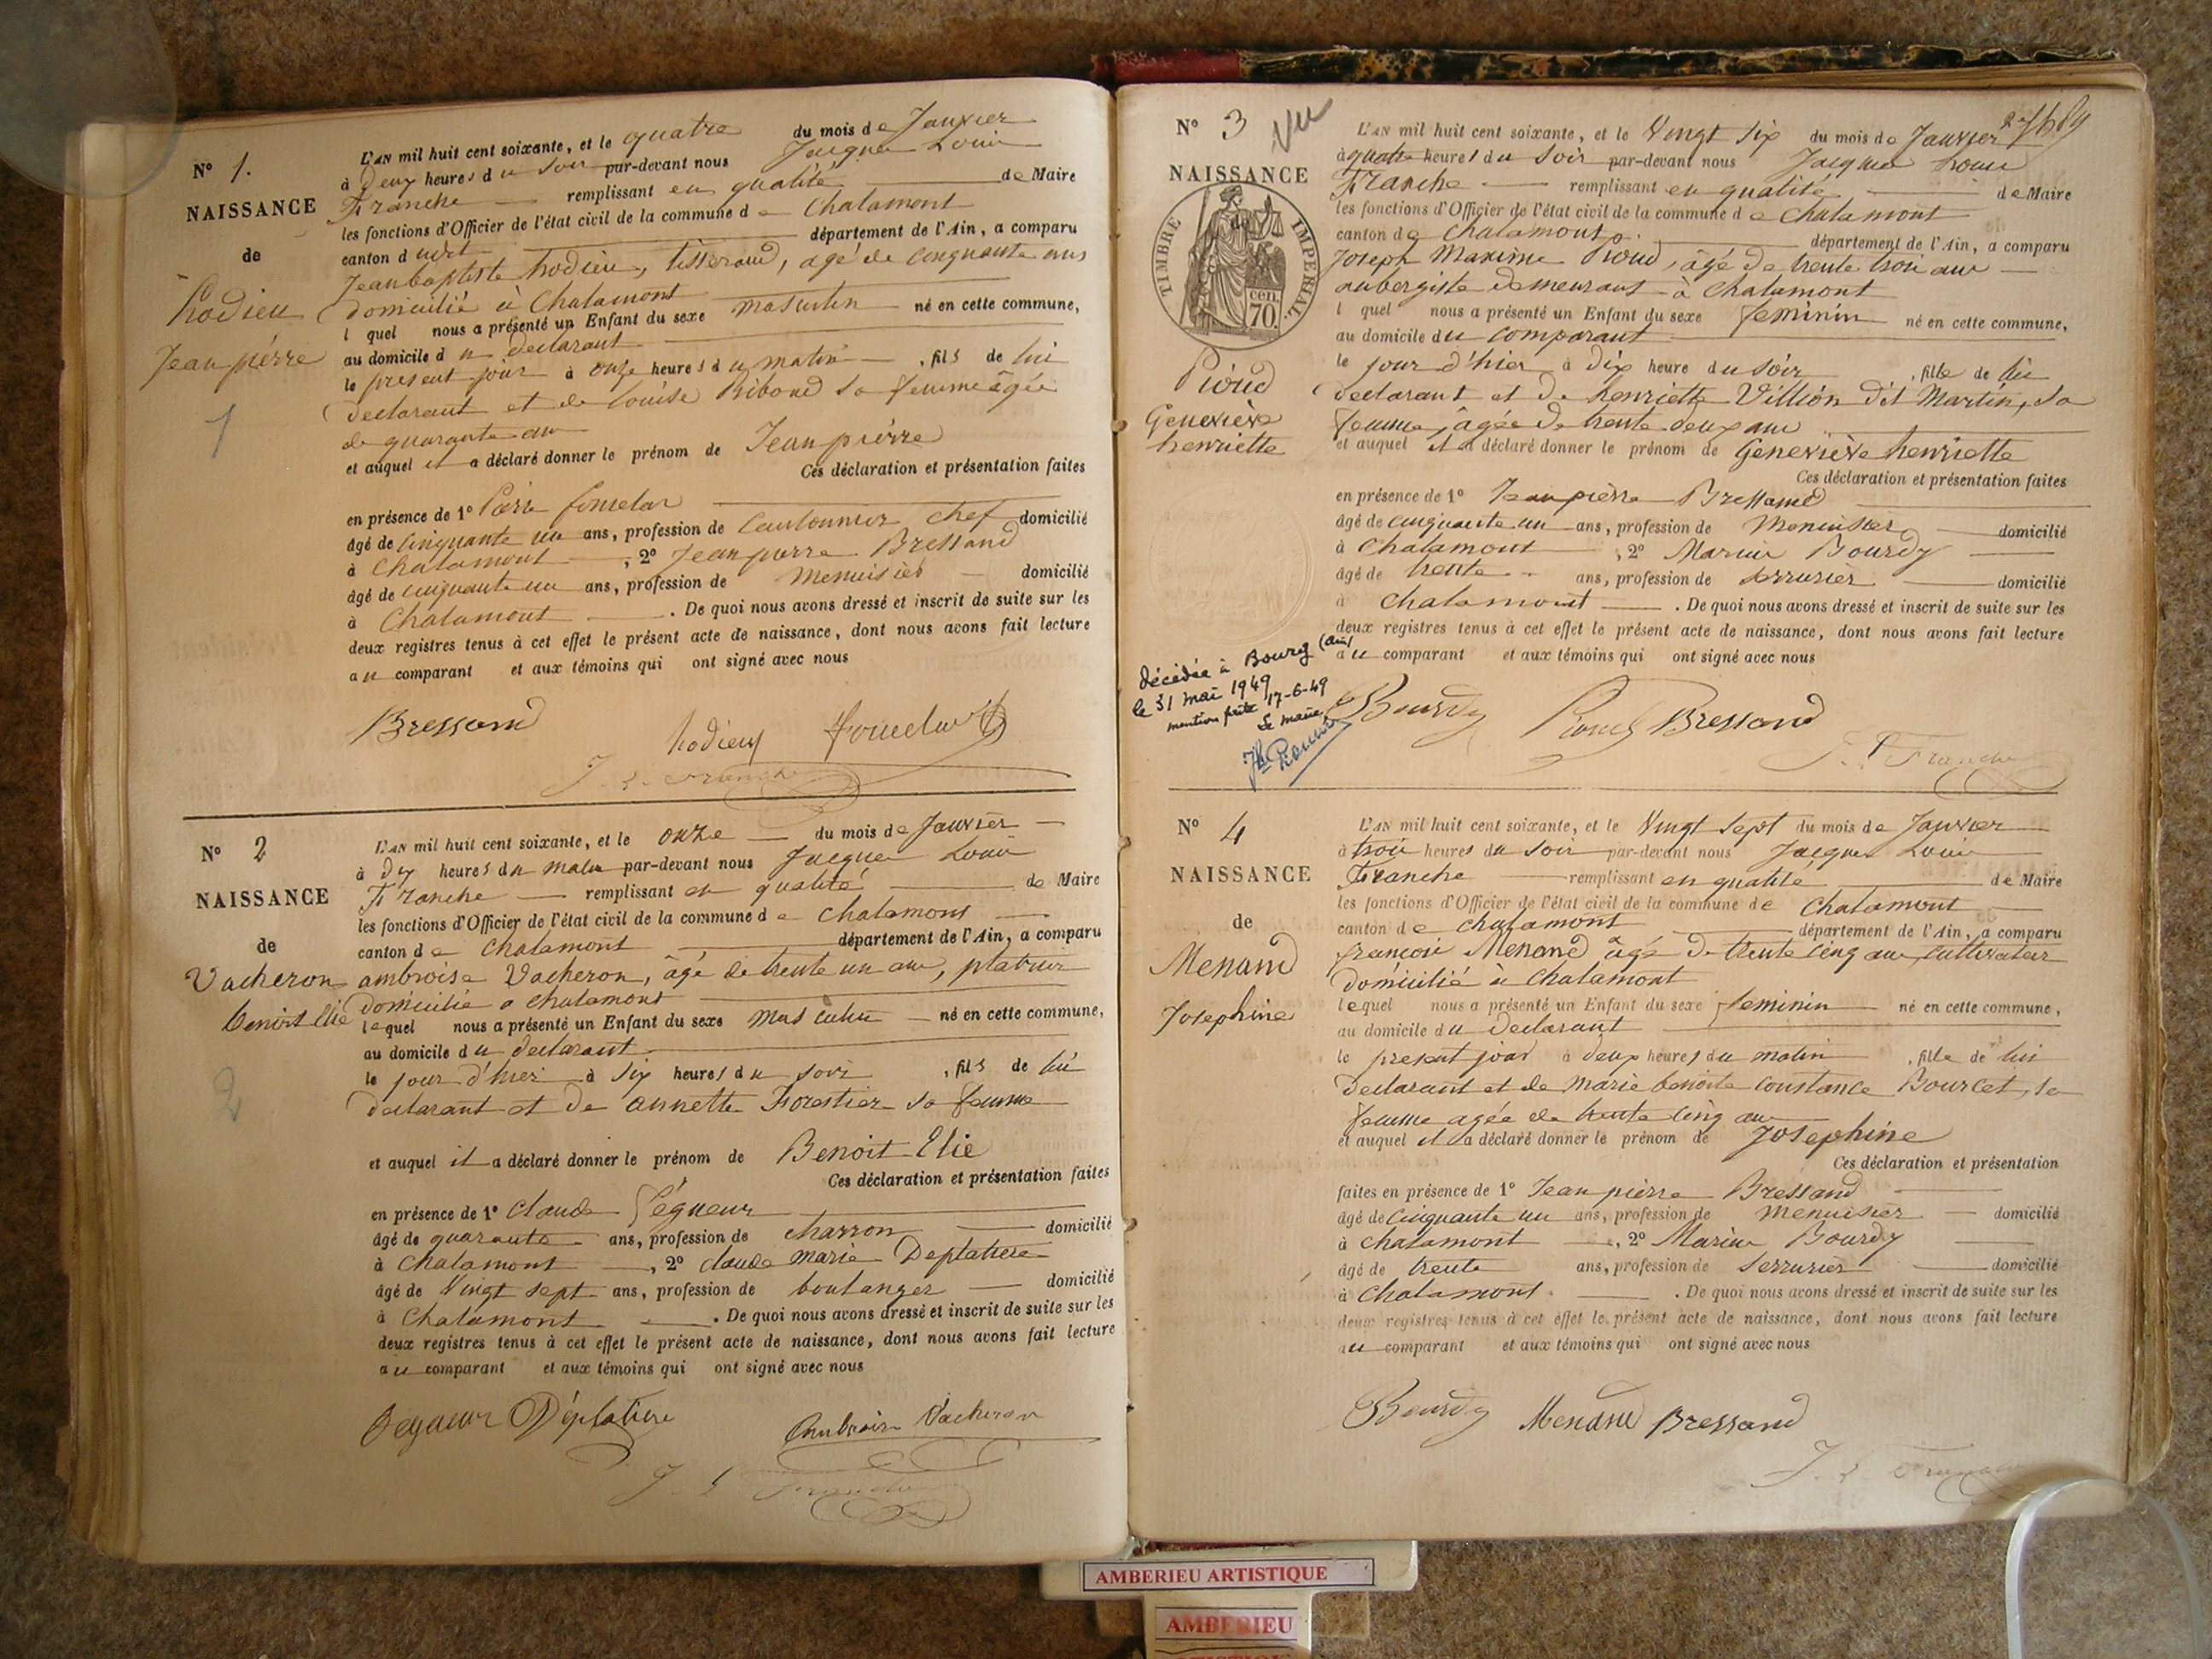 N° 1.
NAISSANCE
de
Jean pierre
1
L'AN mil huit cent soixante, et le quatre du mois de Janvier
à Deux heures du soir par-devant nous Jacques Louis
Franche remplissant en qualité de Maire
les fonctions d'Officier de l'état civil de la commune de Chalamont
canton dudit département de l'Ain, a comparu
Jean baptiste , tisserand, agé de cinquante ans
domicilié à Chalamont
lequel nous a présenté un Enfant du sexe masculin né en cette commune,
au domicile du declarant
le present jour à onze heures du matin , fils de lui
declarant et de Louise Riboud sa femme âgée
de quarante ans
et auquel il a déclaré donner le prénom de Jean pierre
Ces déclaration et présentation faites
en présence de 1°
âgé de Cinquante un ans, profession de Cantonnier chef domicilié
à Chalamont , 2° Jean pierre Bressand
âgé de cinquante un ans, profession de Menuisier domicilié
à Chalamont . De quoi nous avons dressé et inscrit de suite sur les
deux registres tenus à cet effet le présent acte de naissance, dont nous avons fait lecture
au comparant et aux témoins qui ont signé avec nous
Bressand
J. L. Franche
N° 2
NAISSANCE
de
Vacheron
benoit Elie
2
L'AN mil huit cent soixante, et le onze du mois de Janvier
à Dix heures du matin par-devant nous Jacques Louis
Franche remplissant en qualité de Maire
les fonctions d'Officier de l'état civil de la commune de Chalamont
canton de Chalamont département de l'Ain, a comparu
ambroise Vacheron, âgé de trente un ans, platrier
domicilié a chalamont
lequel nous a présenté un Enfant du sexe masculin né en cette commune,
au domicile du declarant
le jour d'hier à six heures du soir , fils de lui
declarant et de annette Forestier sa femme
et auquel il a déclaré donner le prénom de Benoit Elie
Ces déclaration et présentation faites
en présence de 1° claude Ségueur
âgé de quarante ans, profession de charron domicilié
à Chalamont , 2° claude marie Deplatiere
âgé de Vingt sept ans, profession de boulanger domicilié
à Chalamont . De quoi nous avons dressé et inscrit de suite sur les
deux registres tenus à cet effet le présent acte de naissance, dont nous avons fait lecture
au comparant et aux témoins qui ont signé avec nous
Déplatiere Ambroise Vacheron
J. L. Franche
N° 3 Vu
NAISSANCE
de
TIMBRE IMPERIAL
70. cen
Pioud
Geneviève
henriette
L'AN mil huit cent soixante, et le Vingt six du mois de Janvier
à quatre heures du soir par-devant nous Jacques Louis
Franche remplissant en qualité de Maire
les fonctions d'Officier de l'état civil de la commune de Chalamont
canton de Chalamont département de l'Ain, a comparu
Joseph Maxime Pioud, âgé de trente trois ans
aubergiste demeurant à Chalamont
lequel nous a présenté un Enfant du sexe feminin né en cette commune,
au domicile du comparant
le jour d'hier à dix heure du soir , fille de lui
declarant et de henriette Villion dit Martin, sa
femme, âgée de trente deux ans
et auquel il a déclaré donner le prénom de Geneviève henriette
Ces déclaration et présentation faites
en présence de 1° Jean pierre Bressand
âgé de cinquante un ans, profession de Menuisier domicilié
à Chalamont , 2° Marius Bourdy
âgé de trente ans, profession de serrurier domicilié
à Chalamont . De quoi nous avons dressé et inscrit de suite sur les
deux registres tenus à cet effet le présent acte de naissance, dont nous avons fait lecture
au comparant et aux témoins qui ont signé avec nous
décédée à Bourg (Ain)
le 31 mai 1949
mention faite 17-6-49
Le maire,
Bourdy Pioud Bressand
J. L. Franche
N° 4
NAISSANCE
de
Menand
Josephine
L'AN mil huit cent soixante, et le Vingt sept du mois de Janvier
à trois heures du soir par-devant nous Jacques Louis
Franche remplissant en qualité de Maire
les fonctions d'Officier de l'état civil de la commune de Chalamont
canton de chalamont département de l'Ain, a comparu
françois Menand âgé de trente cinq ans, cultivateur
domicilié à Chalamont
lequel nous a présenté un Enfant du sexe feminin né en cette commune,
au domicile du declarant
le present jour à deux heures du matin , fille de lui
Declarant et de marie benoite constance Bourcet, sa
femme agée de trente cinq ans
et auquel il a déclaré donner le prénom de Josephine
Ces déclaration et présentation
faites en présence de 1° Jean pierre Bressand
âgé de cinquante un ans, profession de menuisier domicilié
à chalamont , 2° Marius Bourdy
âgé de trente ans, profession de serrurier domicilié
à Chalamont . De quoi nous avons dressé et inscrit de suite sur les
deux registres tenus à cet effet le présent acte de naissance, dont nous avons fait lecture
au comparant et aux témoins qui ont signé avec nous
Bourdy Menand Bressand
J. L. Franche
AMBERIEU ARTISTIQUE
AMBERIEU